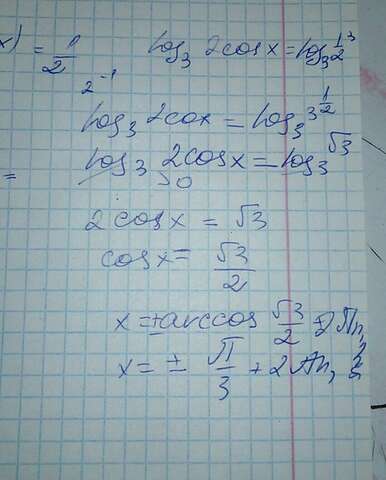 x) = 1/2 log₃ 2cosx = log₃ 1/2 ³
2⁻¹
log₃ 2cosx = log₃ 3^(1/2)
= log₃ 2cosx = log₃ √3
>0
2cosx = √3
cosx = √3/2
x = ±arccos √3/2 + 2πn,
x = ± π/3 + 2πn,